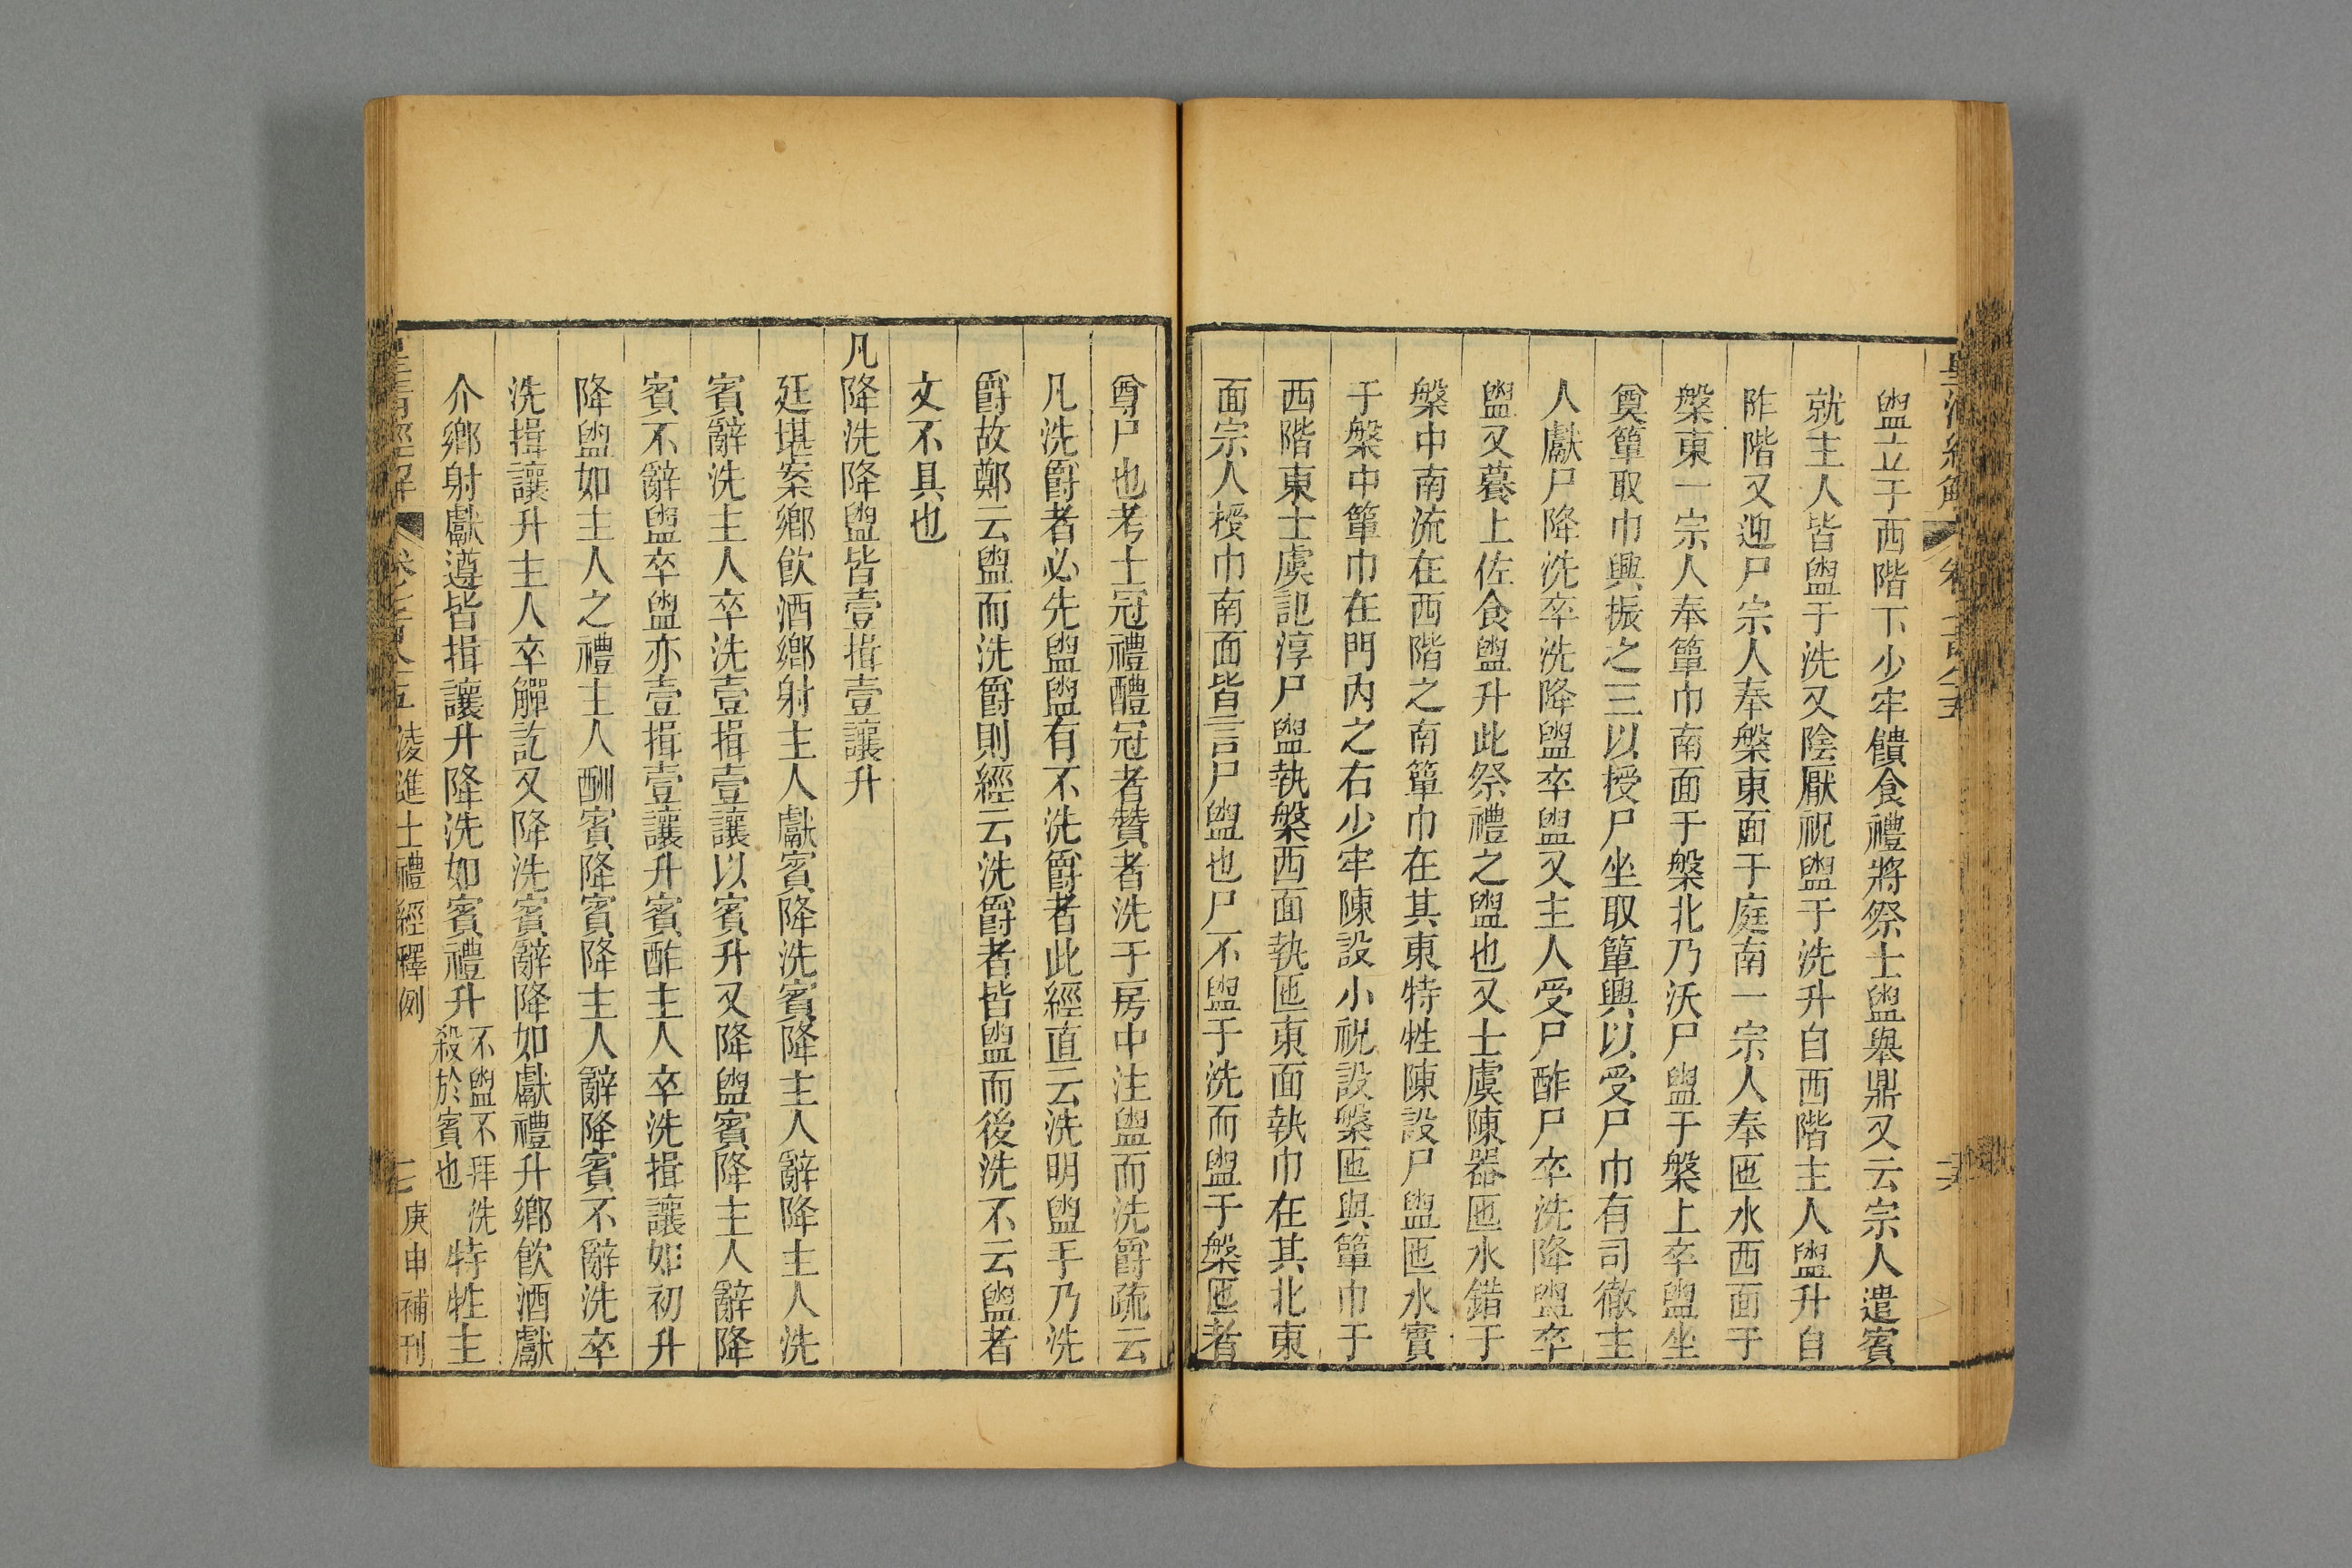 盥立于西階下少牢饋食禮將祭士盥舉鼎又云宗人遣賓
就主人皆盥于洗又陰厭祝盥于洗升自西階主人盥升自
阼階又迎尸宗人奉槃東面于庭南一宗人奉匜水西面于
槃東一宗人奉簞巾南面于槃北乃沃尸盥于槃上卒盥坐
奠簞取巾興振之三以授尸坐取簞興以受尸巾有司徹主
人獻尸降洗卒洗降盥卒盥又主人受尸酢尸卒洗降盥卒
盥又䉵上佐食盥升此祭禮之盥也又士虞陳器匜水錯于
槃中南流在西階之南簞巾在其東特牲陳設尸盥匜水實
于槃中簞巾在門內之右少牢陳設小祝設槃匜與簞巾于
西階東士虞記淳尸盥執槃西面執匜東面執巾在其北東
面宗人授巾南面皆言尸盥也尸不盥于洗而盥于槃匜者
尊尸也考士冠禮醴冠者贊者洗于房中注盥而洗爵疏云
凡洗爵者必先盥盥有不洗爵者此經直云洗明盥手乃洗
爵故鄭云盥而洗爵則經云洗爵者皆盥而後洗不云盥者
文不具也
凡降洗降盥皆壹揖壹讓升
廷堪案鄉飲酒鄉射主人獻賓降洗賓降主人辭降主人洗
賓辭洗主人卒洗壹揖壹讓以賓升又降盥賓降主人辭降
賓不辭盥卒盥亦壹揖壹讓升賓酢主人卒洗揖讓如初升
降盥如主人之禮主人酬賓降賓降主人辭降賓不辭洗卒
洗揖讓升主人卒觶訖又降洗賓辭降如獻禮升鄉飲酒獻
介鄉射獻遵皆揖讓升降洗如賓禮升不盥不拜洗殺於賓也特牲主
淩進士禮經釋例
庚申補刊